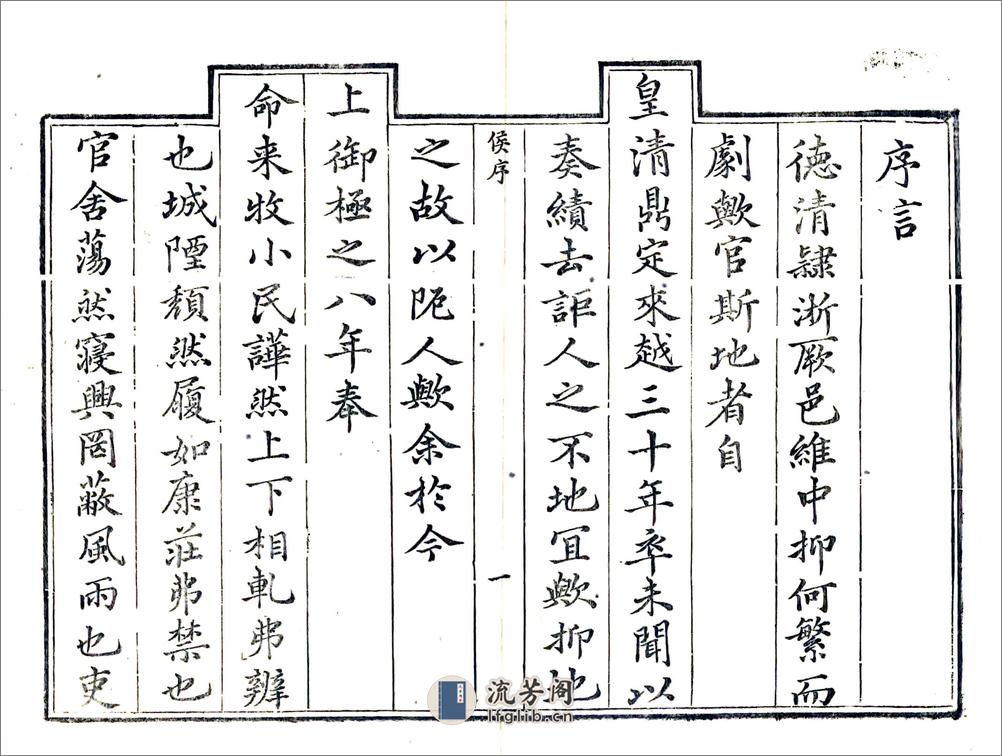 序言
德清隷浙厥邑維中抑何繁而
劇歟官斯地者自
皇清鼎定來越三十年率未聞以
奏績去詎人之不地宜歟抑地
之故以阨人歟余於今
侯序
一
上御極之八年奉
命来牧小民譁然上下相軋弗辨
也城陻頽然履如康莊弗禁也
官舍蕩然寢興罔蔽風雨也吏
流芳阁
lfglib.cn